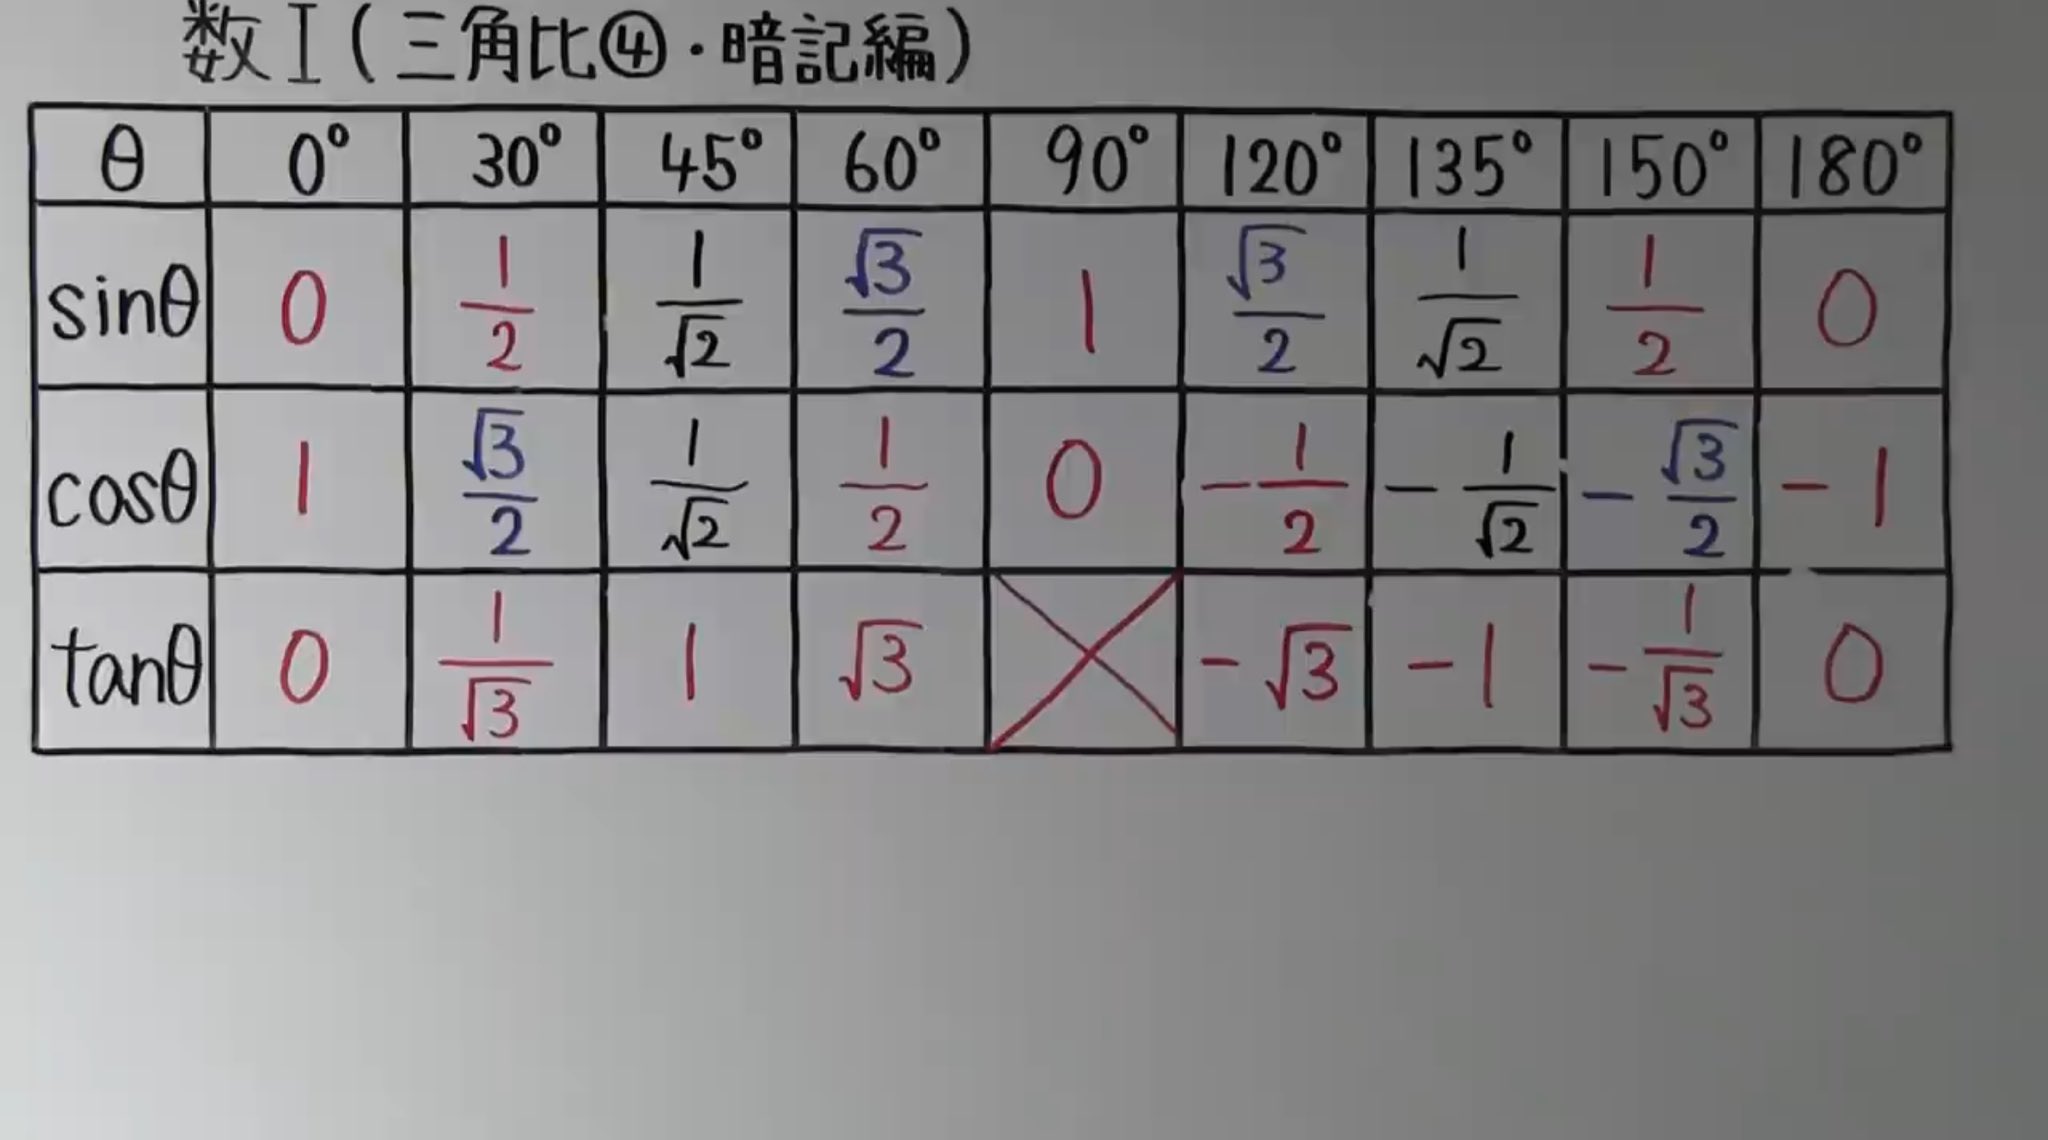 数I(三角比④・暗記編)
θ 0° 30° 45° 60° 90° 120° 135° 150° 180°
sinθ 0 1/2 1/√2 √3/2 1 √3/2 1/√2 1/2 0
cosθ 1 √3/2 1/√2 1/2 0 -1/2 -1/√2 -√3/2 -1
tanθ 0 1/√3 1 √3 -√3 -1 -1/√3 0